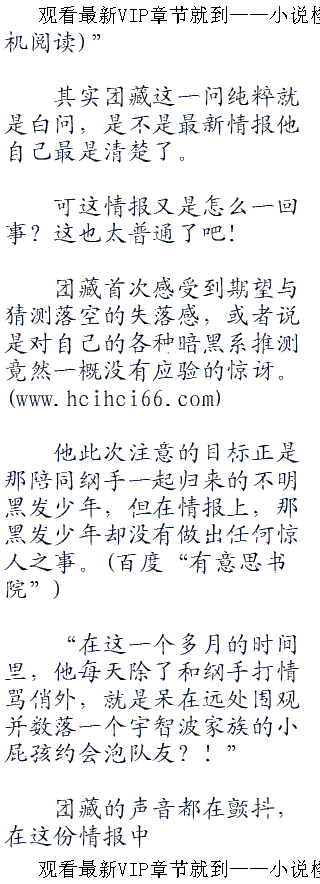 观看最新VIP章节就到——小说
机阅读)”
其实团藏这一问纯粹就
是白问，是不是最新情报他
自己最是清楚了。
可这情报又是怎么一回
事？这也太普通了吧！
团藏首次感受到期望与
猜测落空的失落感，或者说
是对自己的各种暗黑系推测
竟然一概没有应验的惊讶。
(www.hcihci66.com)
他此次注意的目标正是
那陪同纲手一起归来的不明
黑发少年，但在情报上，那
黑发少年却没有做出任何惊
人之事。(百度“有意思书
院”)
“在这一个多月的时间
里，他每天除了和纲手打情
骂俏外，就是呆在远处围观
并数落一个宇智波家族的小
屁孩约会泡队友？！”
团藏的声音都在颤抖，
在这份情报中
观看最新VIP章节就到——小说